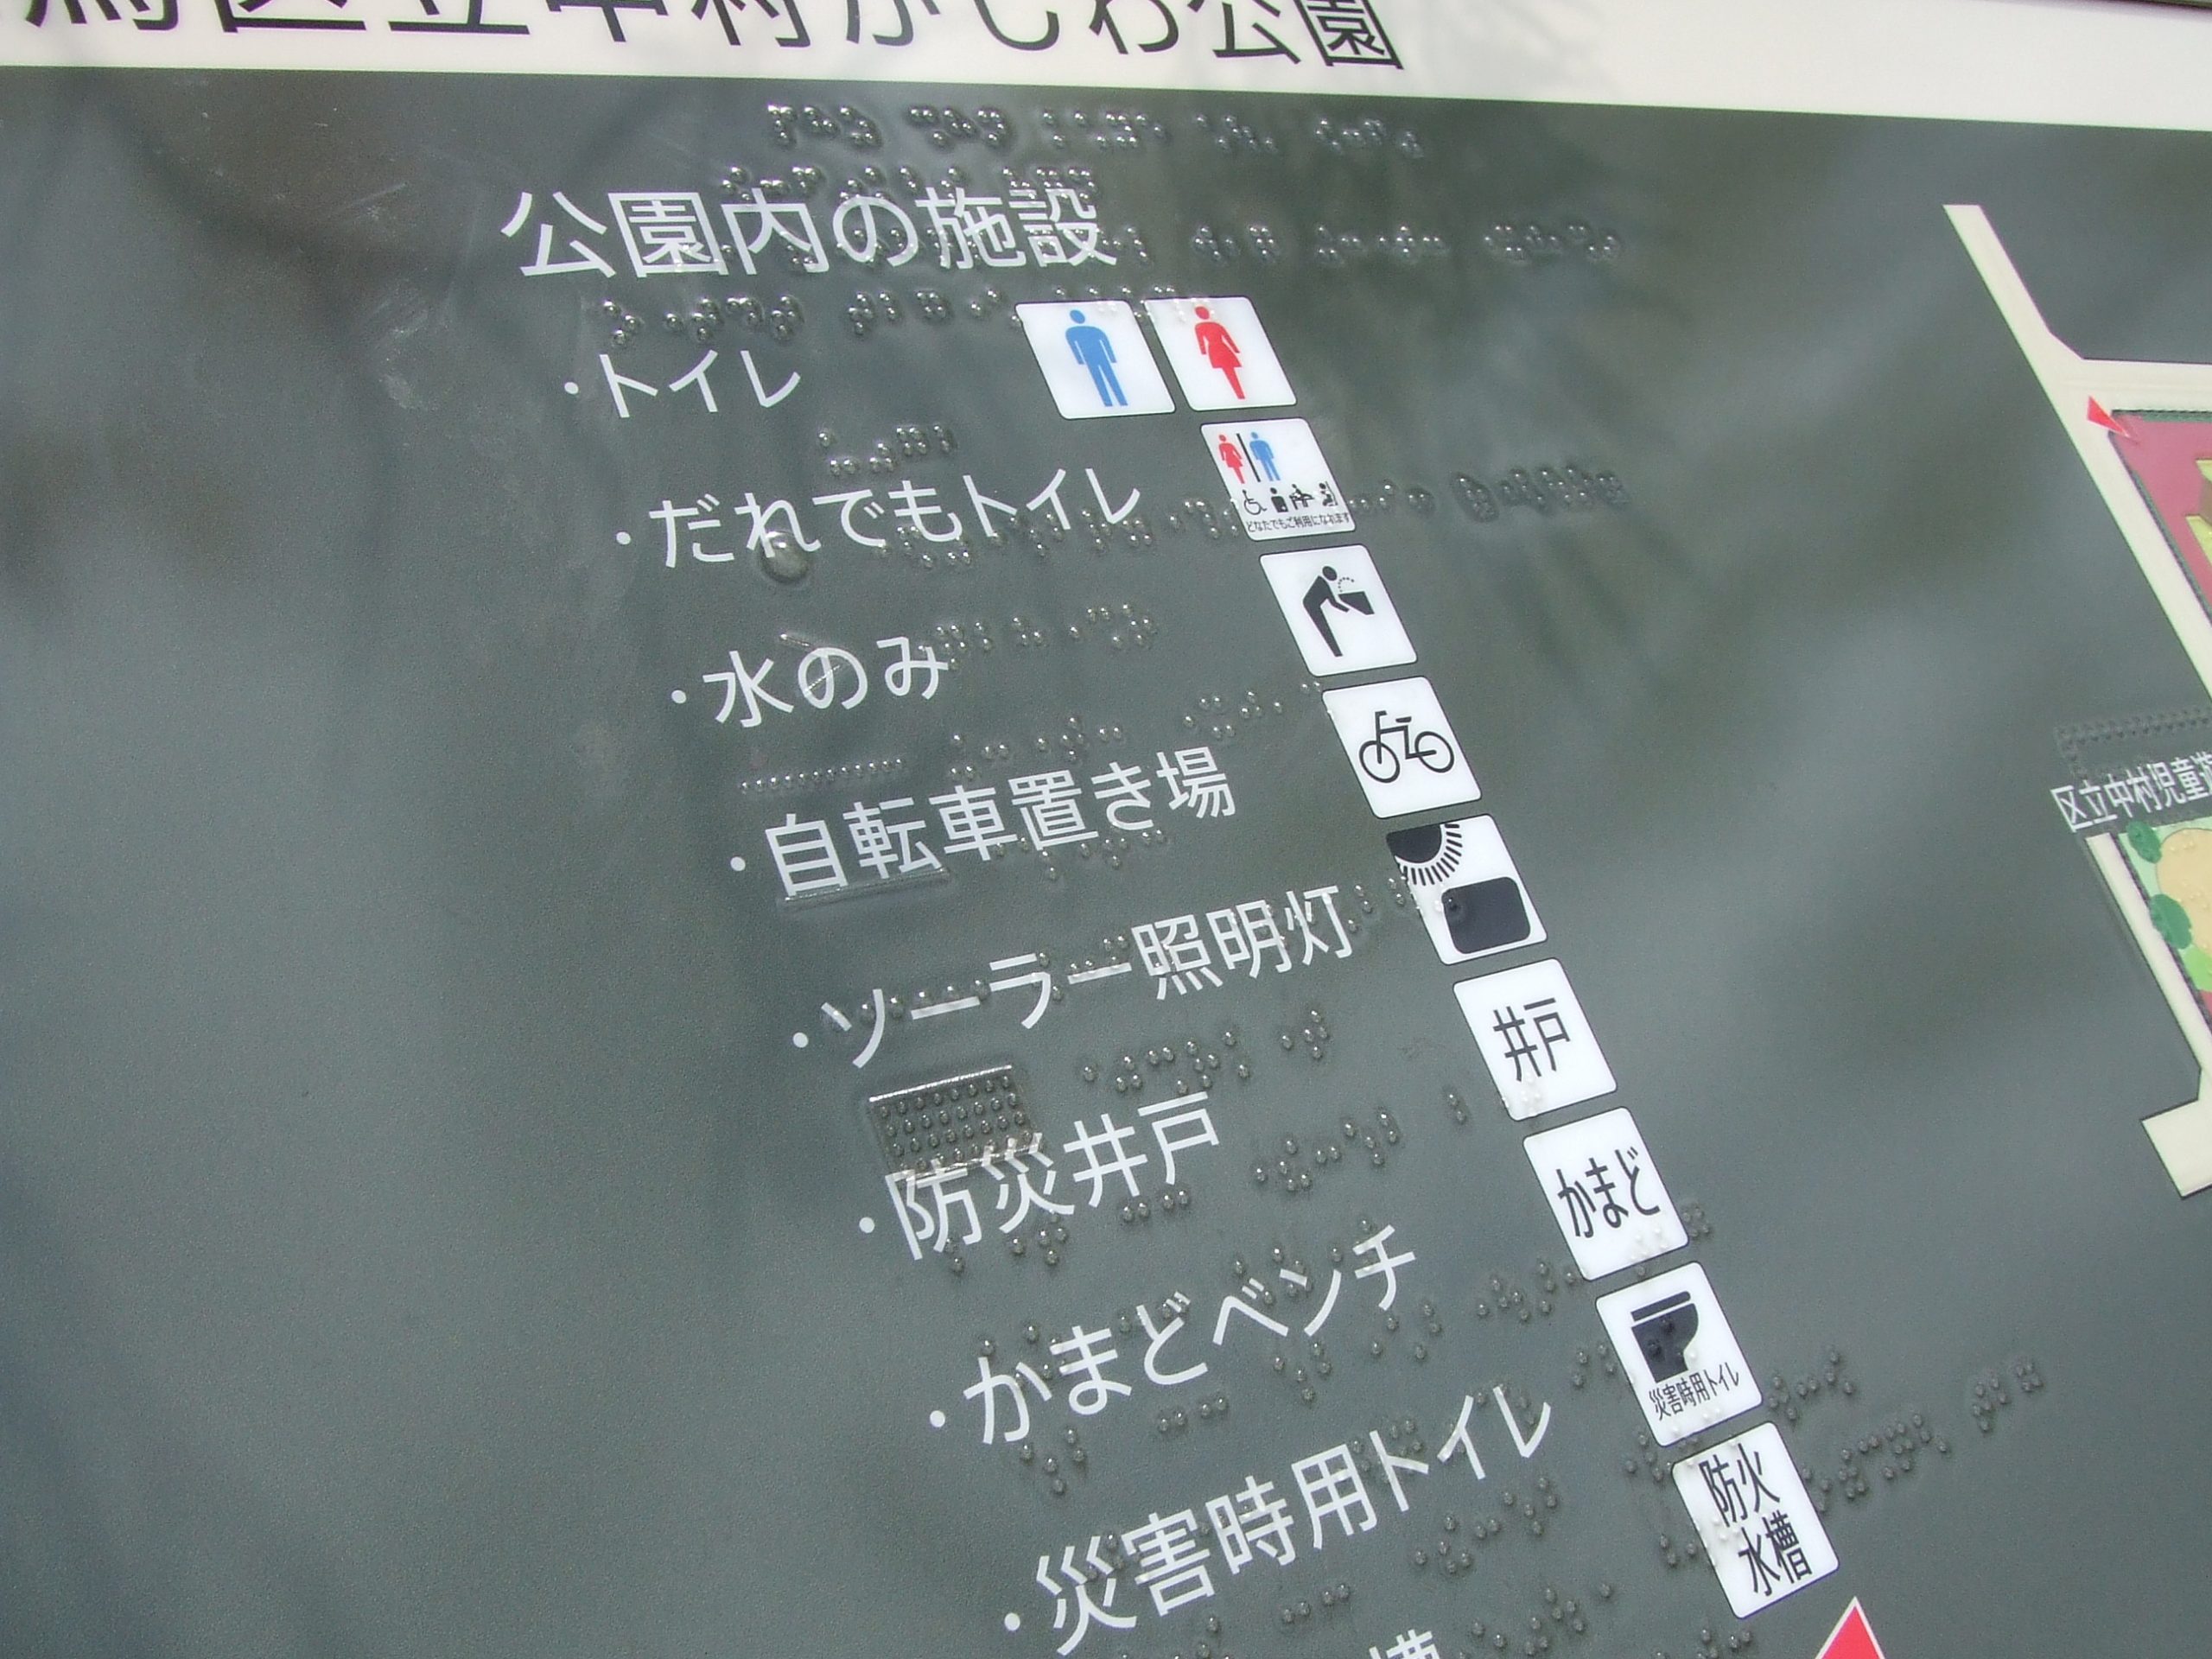 区立中村かしわ公園
公園内の施設
・トイレ
・だれでもトイレ
どなたでもご利用になれます
・水のみ
・自転車置き場
・ソーラー照明灯
・防災井戸
井戸
・かまどベンチ
かまど
・災害時用トイレ
災害時用トイレ
防火
水槽
槽
区立中村児童遊